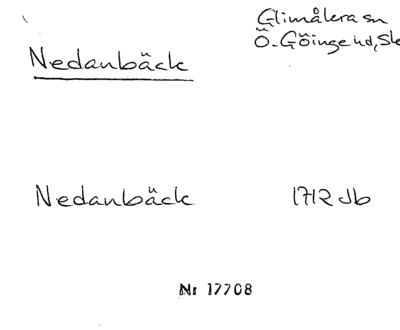 Glimåkra sn
Nedanbäck
Ö. Göinge hd, Sk
Nedanbäck
1712 Jb
Nr 17708